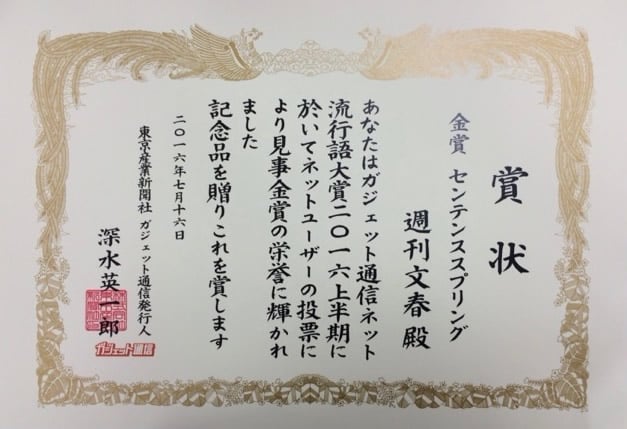 賞状
金賞 センテンススプリング
週刊文春 殿
あなたはガジェット通信ネット
流行語大賞二〇一六上半期に
於いてネットユーザーの投票に
より見事金賞の栄誉に輝かれ
ました
記念品を贈りこれを賞します
二〇一六年七月十六日
東京産業新聞社 ガジェット通信発行人
深水英一郎
ガジェット通信